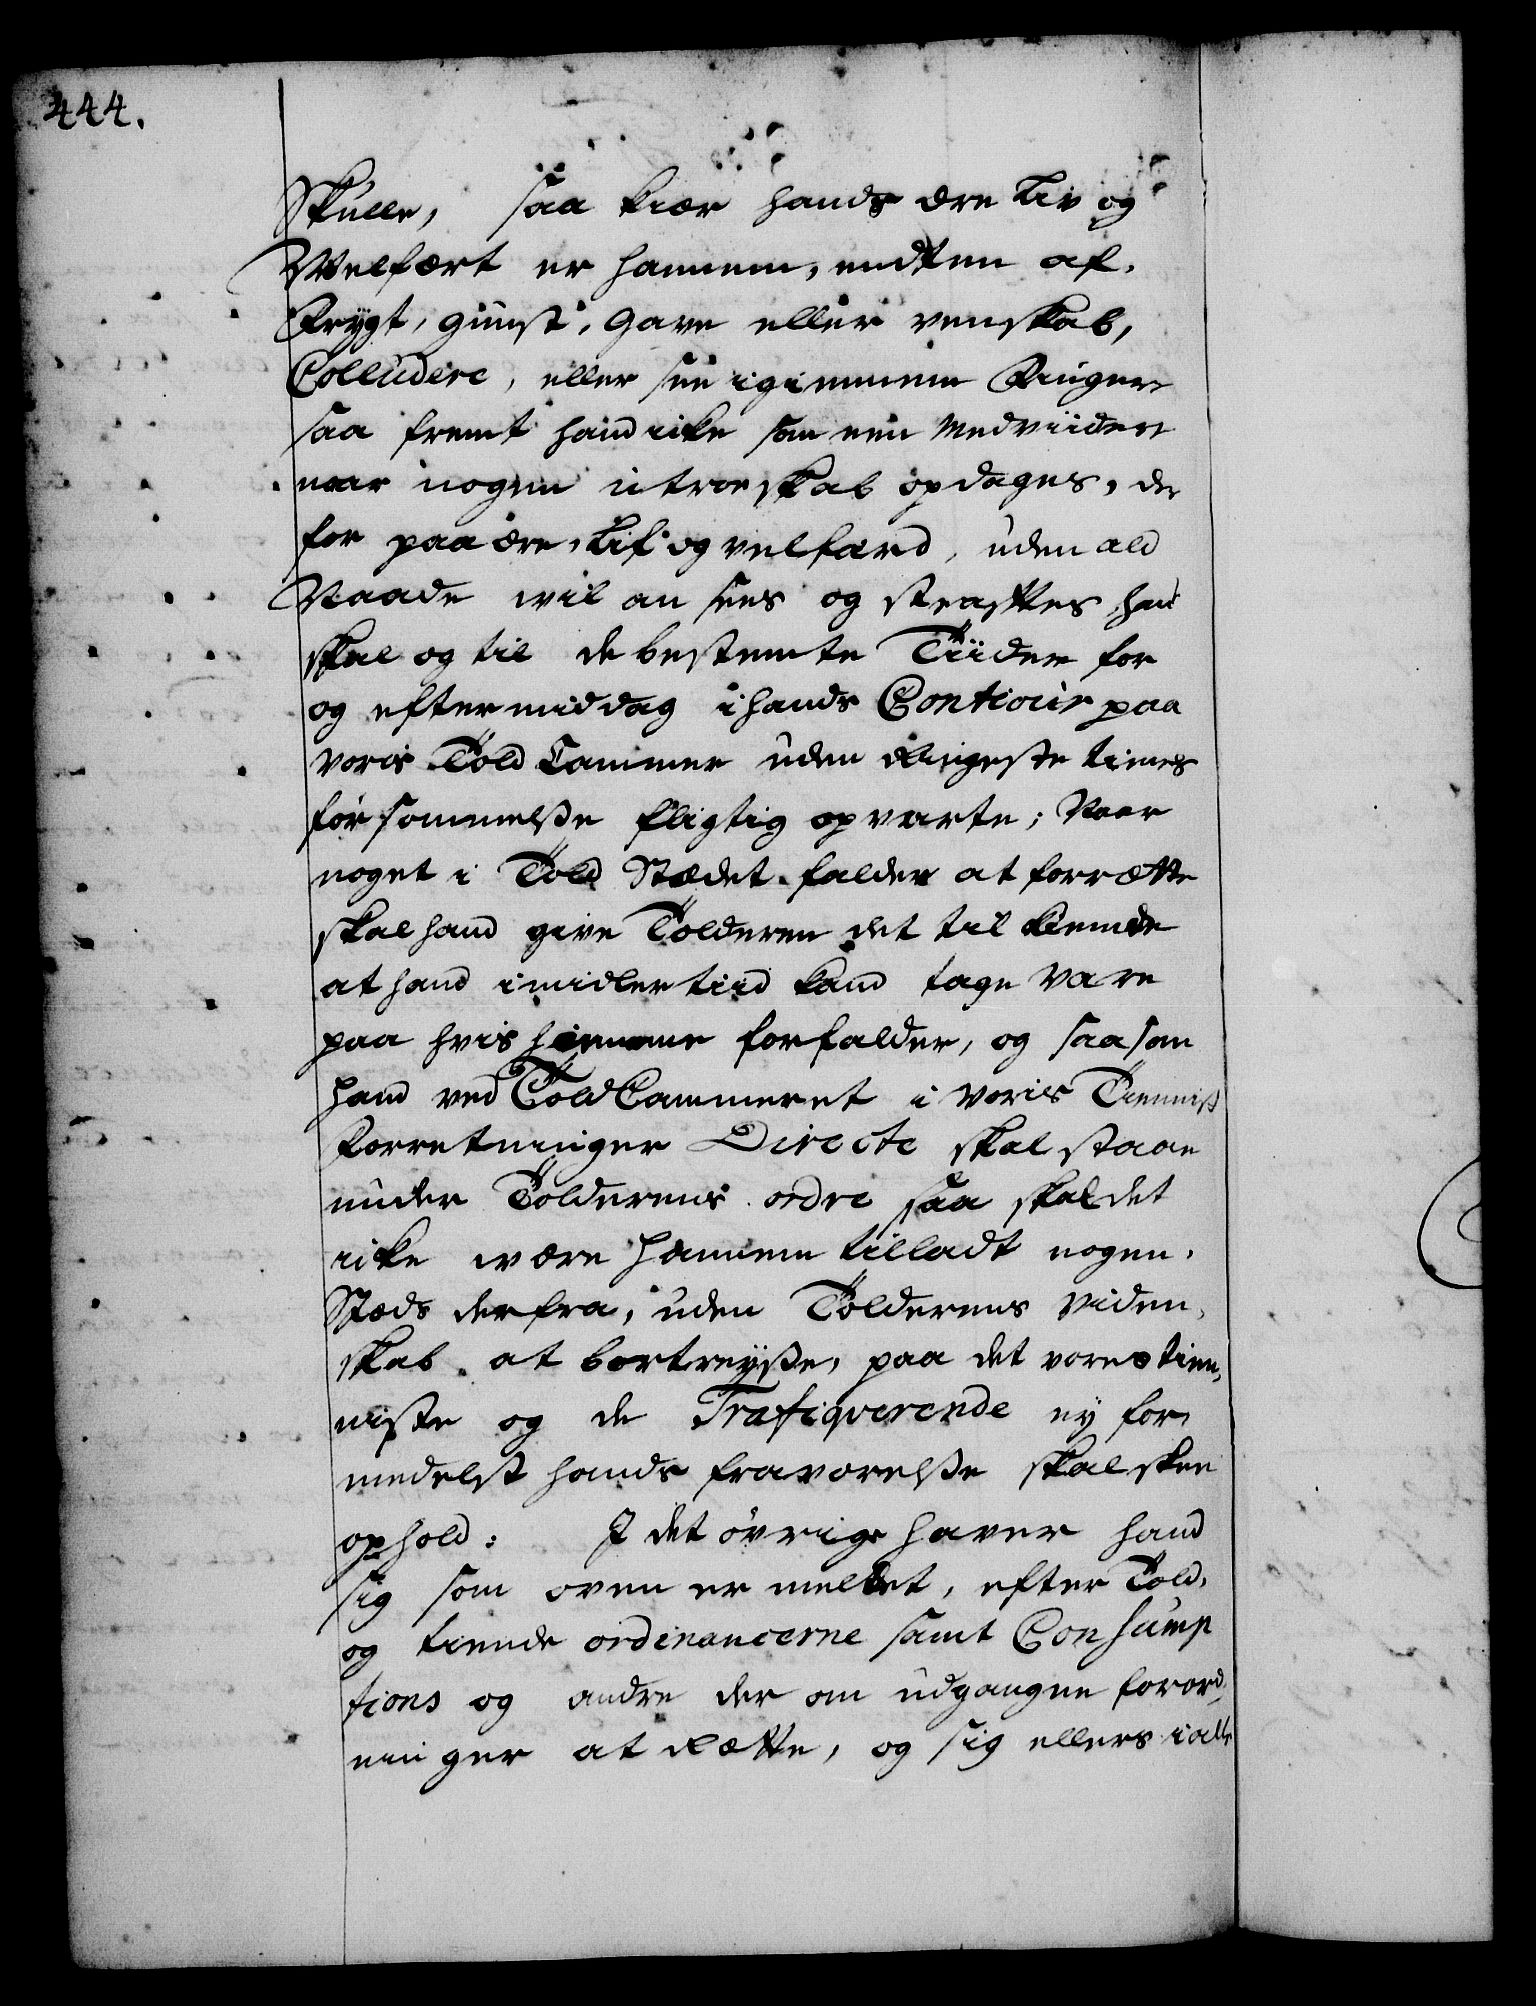 444.
Skulle, saa kiær hands ære Liv og
Welfært er hannem, endten af
Frygt, gunst, Gave eller venskab,
Colludere, eller see igiennem Finger
saa fremt hand icke som een Medviider
naar nogen utroeskab opdages, der
for paa ære, Lif og velfærd, uden ald
Naade wil an sees og straffes, hand
skal og til de bestemte Tiider for
og eftermiddag i hands Contioir paa
voris Told Cammer uden Ringeste times
forsømmelsse fligtig opvarte; Naar
noget i Told Stædet falder at forrætte
skal hand give Tolderen det til kiende
at hand imidlertiid kand tage Vare
paa hvis hiemme forfalder, og saasom
hand ved Told Cammeret i voris Tienniste
Forretninger Directe skal staae
under Tolderens ordre saa skal det
icke være hannem tilladt nogen
Stæds derfra, uden Tolderens viden,
skab at bortreysse, paa det vores tien,
niste og de Trafiqverende ey for
medelst hands fraværelsse skal skee
ophold: I det øvrige haver hand
sig som oven er meldet, efter Told,
og tiende ordinancerne samt Consump
tions og andre der om udgangne forord,
ninger at Rætte, og sig ellers i alle